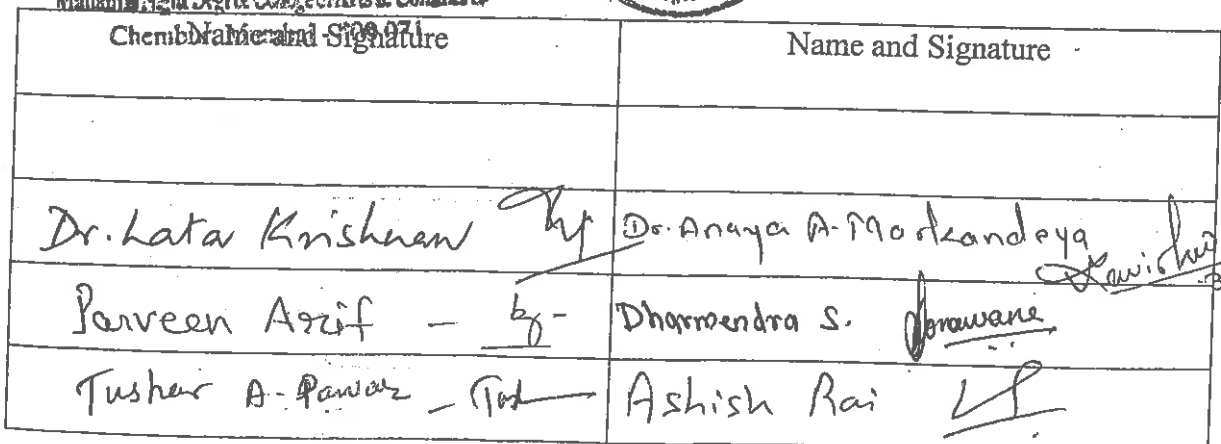 Name and Signature
Name and Signature
Dr. Lata Krishnan
Dr. Anaya A. Markandeya
Parveen Azif
Dharmendra S. Sonawane
Tushar A. Pawar
Ashish Rai